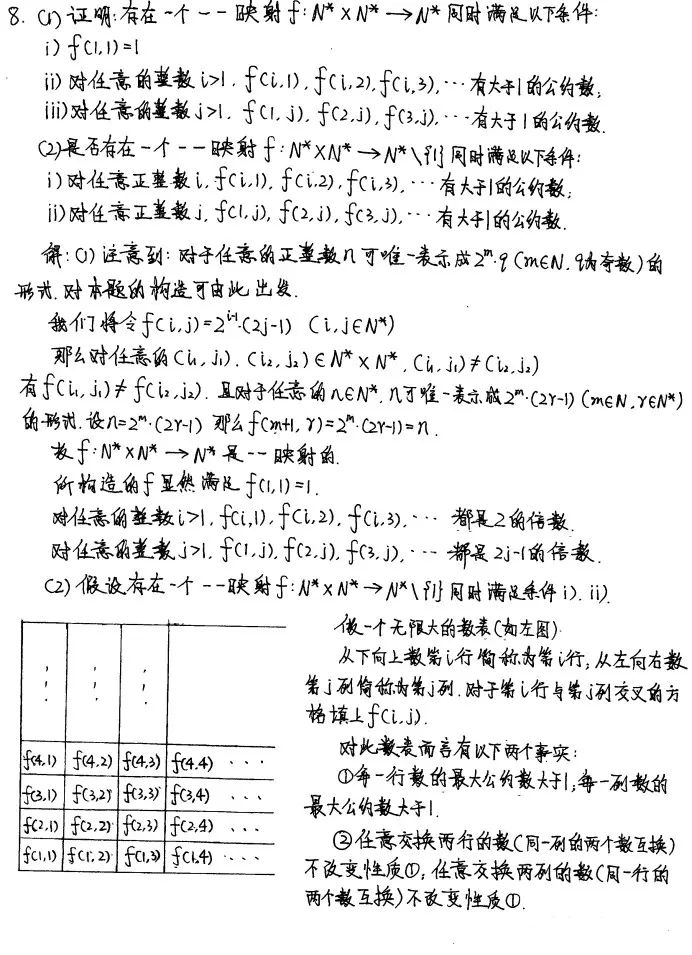 8. (1) 证明:存在一个一一映射 f: N* × N* → N* 同时满足以下条件:
i) f(1,1)=1
ii) 对任意的整数 i>1, f(i,1), f(i,2), f(i,3), … 有大于1的公约数;
iii) 对任意的整数 j>1, f(1,j), f(2,j), f(3,j), … 有大于1的公约数.
(2) 是否存在一个一一映射 f: N*×N* → N*\{1} 同时满足以下条件:
i) 对任意正整数 i, f(i,1), f(i,2), f(i,3), … 有大于1的公约数;
ii) 对任意正整数 j, f(1,j), f(2,j), f(3,j), … 有大于1的公约数.
解: (1) 注意到: 对于任意的正整数 n 可唯一表示成 2^m·q (m∈N, q为奇数) 的
形式. 对本题的构造可由此出发.
我们将令 f(i,j)=2^{i-1}·(2j-1) (i,j∈N*)
那么对任意的 (i₁,j₁), (i₂,j₂) ∈ N*×N*, (i₁,j₁)≠(i₂,j₂)
有 f(i₁,j₁)≠f(i₂,j₂). 且对于任意的 n∈N*, n可唯一表示成 2^m·(2r-1) (m∈N, r∈N*)
的形式. 设 n=2^m·(2r-1) 那么 f(m+1, r)=2^m·(2r-1)=n.
故 f: N*×N* → N* 是一一映射的.
所构造的 f 显然满足 f(1,1)=1.
对任意的整数 i>1, f(i,1), f(i,2), f(i,3), … 都是2的倍数.
对任意的整数 j>1, f(1,j), f(2,j), f(3,j), … 都是 2j-1 的倍数.
(2) 假设存在一个一一映射 f: N*×N* → N*\{1} 同时满足条件 i). ii).
做一个无限大的数表(如左图).
从下向上数第i行简称为第i行, 从左向右数
第j列简称为第j列. 对于第i行与第j列交叉的方
格填上 f(i,j).
对此数表而言有以下两个事实:
①每一行数的最大公约数大于1, 每一列数的
最大公约数大于1.
②任意交换两行的数(同一列的两个数互换)
不改变性质①, 任意交换两列的数(同一行的
两个数互换)不改变性质①.
f(4,1) f(4,2) f(4,3) f(4,4) …
f(3,1) f(3,2) f(3,3) f(3,4) …
f(2,1) f(2,2) f(2,3) f(2,4) …
f(1,1) f(1,2) f(1,3) f(1,4) …